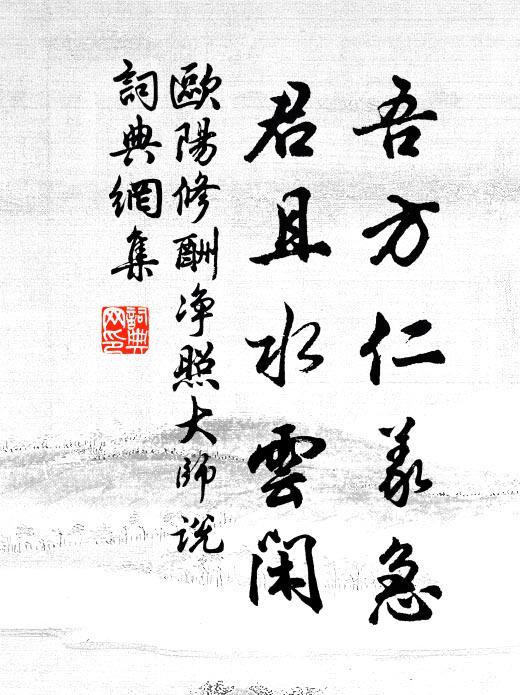 吾方仁義急
君且水雲閑
歐陽修酬净照大師説
詞典網集
詞典
网印